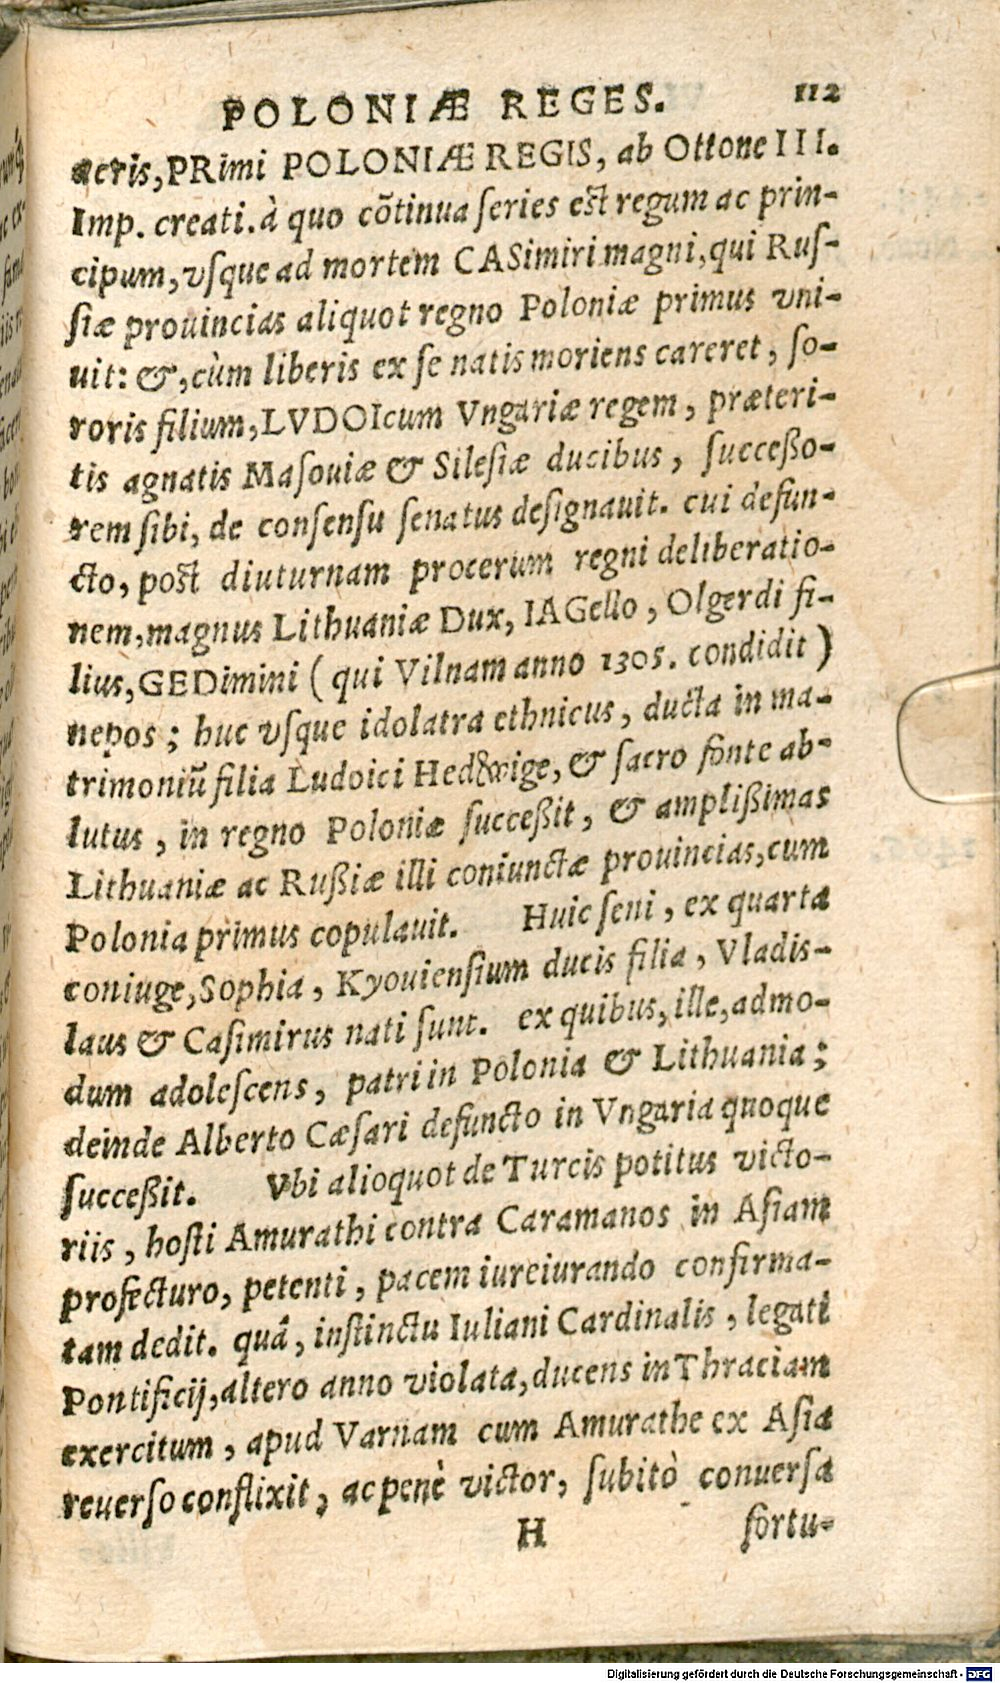 POLONIÆ REGES. 112
acris, PRimi POLONIÆ REGIS, ab Ottone III.
Imp. creati. à quo cõtinua ſeries eſt regum ac prin-
cipum, vſque ad mortem CASimiri magni, qui Ruſ-
ſiæ prouincias aliquot regno Poloniæ primus vni-
uit: &, cùm liberis ex ſe natis moriens careret, ſo-
roris filium, LVDOIcum Vngariæ regem, præteri-
tis agnatis Maſouiæ & Sileſiæ ducibus, ſucceßo-
rem ſibi, de conſenſu ſenatus deſignauit. cui defun-
cto, poſt diuturnam procerum regni deliberatio-
nem, magnus Lithuaniæ Dux, IAGello, Olgerdi fi-
lius, GEDimini ( qui Vilnam anno 1305. condidit )
nepos ; huc vſque idolatra ethnicus, ducta in ma-
trimoniũ filia Ludoici Hedwige, & ſacro fonte ab-
lutus, in regno Poloniæ ſucceßit, & amplißimas
Lithuaniæ ac Rußiæ illi coniunctæ prouincias, cum
Polonia primus copulauit. Huic ſeni, ex quarta
coniuge, Sophia, Kyouienſium ducis filia, Vladis-
laus & Caſimirus nati ſunt. ex quibus, ille, admo-
dum adoleſcens, patri in Polonia & Lithuania ;
deinde Alberto Cæſari defuncto in Vngaria quoque
ſucceßit. Vbi alioquot de Turcis potitus victo-
riis, hoſti Amurathi contra Caramanos in Aſiam
profecturo, petenti, pacem iureiurando confirma-
tam dedit. quâ, inſtinctu Iuliani Cardinalis, legati
Pontificij, altero anno violata, ducens in Thraciam
exercitum, apud Varnam cum Amurathe ex Aſia
reuerſo conflixit, ac penè victor, ſubitò conuerſa
H fortu-
Digitalisierung gefördert durch die Deutsche Forschungsgemeinschaft - DFG